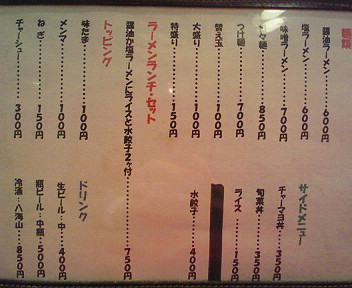 麺類
醤油ラーメン・・・・・・600円
塩ラーメン・・・・・・600円
味噌ラーメン・・・・・・700円
々麺・・・・・・850円
つけ麺・・・・・・700円
替え玉・・・・・・100円
大盛り・・・・・・100円
特盛り・・・・・・150円
ラーメンランチ・セット
醤油か塩ラーメンにライスと水餃子2ヶ付・・・・・・750円
トッピング
味たま・・・・・・100円
メンマ・・・・・・100円
ねぎ・・・・・・150円
チャーシュー・・・・・・300円
サイドメニュー
チャーマヨ丼・・・・・・350円
旬菜丼・・・・・・350円
ライス・・・・・・150円
水餃子・・・・・・400円
ドリンク
生ビール：中・・・・・・400円
瓶ビール：中瓶・・・・・・500円
冷酒：八海山・・・・・・850円